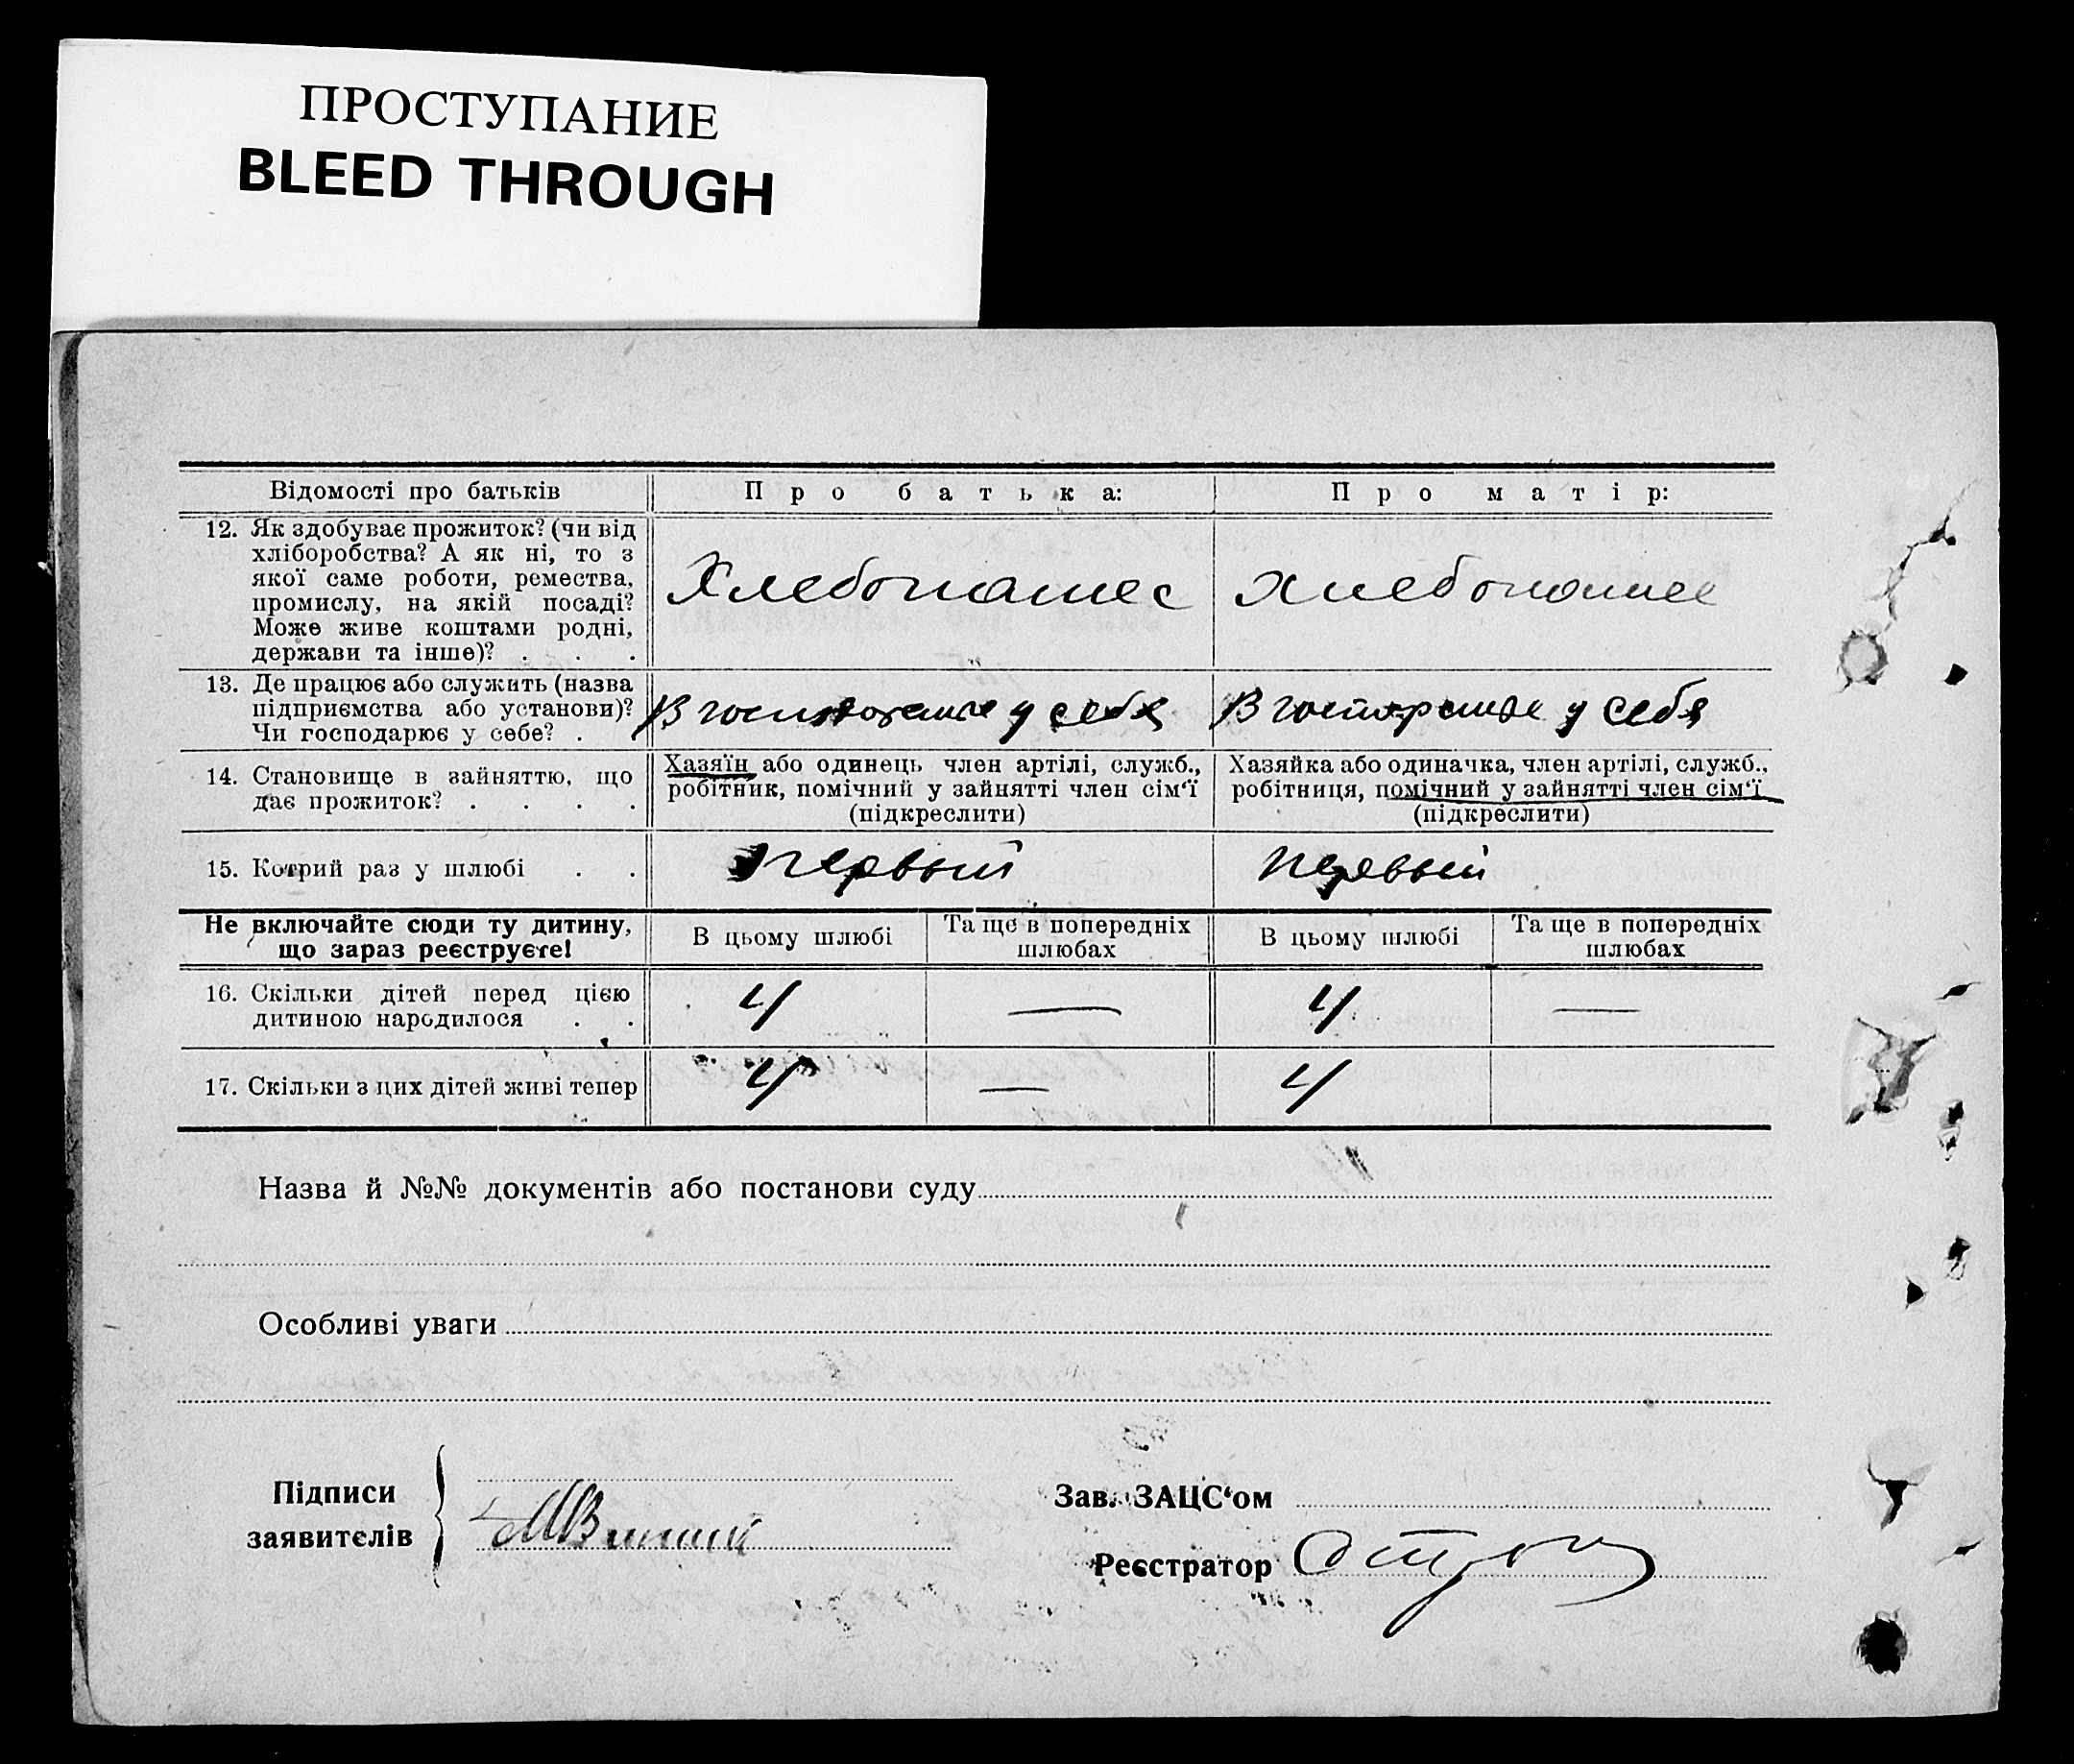 ПРОСТУПАНИЕ
BLEED THROUGH
Відомості про батьків
Про батька:
Про матір:
12. Як здобуває прожиток? (чи від
хліборобства? А як ні, то з
якої саме роботи, ремества,
промислу, на якій посаді?
Може живе коштами родні,
держави та інше)? . . .
Хлебопашес
Хлебопашес
13. Де працює або служить (назва
підприємства або установи)?
Чи господарює у себе? . .
В у себя
В у себя
14. Становище в зайняттю, що
дає прожиток? . . . .
Хазяїн або одинець член артілі, служб.,
робітник, помічний у зайнятті член сім‘ї
(підкреслити)
Хазяйка або одиначка, член артілі, служб.,
робітниця, помічний у зайнятті член сім‘ї
(підкреслити)
15. Котрий раз у шлюбі . .
первый
первый
Не включайте сюди ту дитину,
що зараз реєструєте!
В цьому шлюбі
Та ще в попередніх
шлюбах
В цьому шлюбі
Та ще в попередніх
шлюбах
16. Скільки дітей перед цією
дитиною народилося . .
4
—
4
—
17. Скільки з цих дітей живі тепер
4
—
4
Назва й №№ документів або постанови суду
Особливі уваги
Підписи
заявителів
Зав. ЗАЦС‘ом
Реєстратор